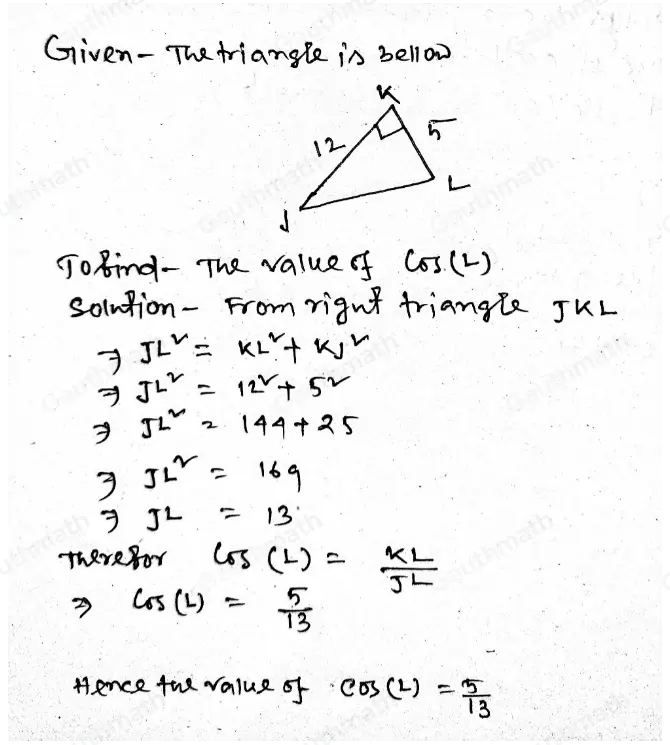 Given - The triangle is bellow
K
12
5
L
J
To find - The value of Cos.(L)
Solution - From right triangle JKL
⇒ JL² = KL² + KJ²
⇒ JL² = 12² + 5²
⇒ JL² = 144 + 25
⇒ JL² = 169
⇒ JL = 13
Therefor Cos (L) = KL/JL
⇒ Cos (L) = 5/13
Hence the value of Cos (L) = 5/13